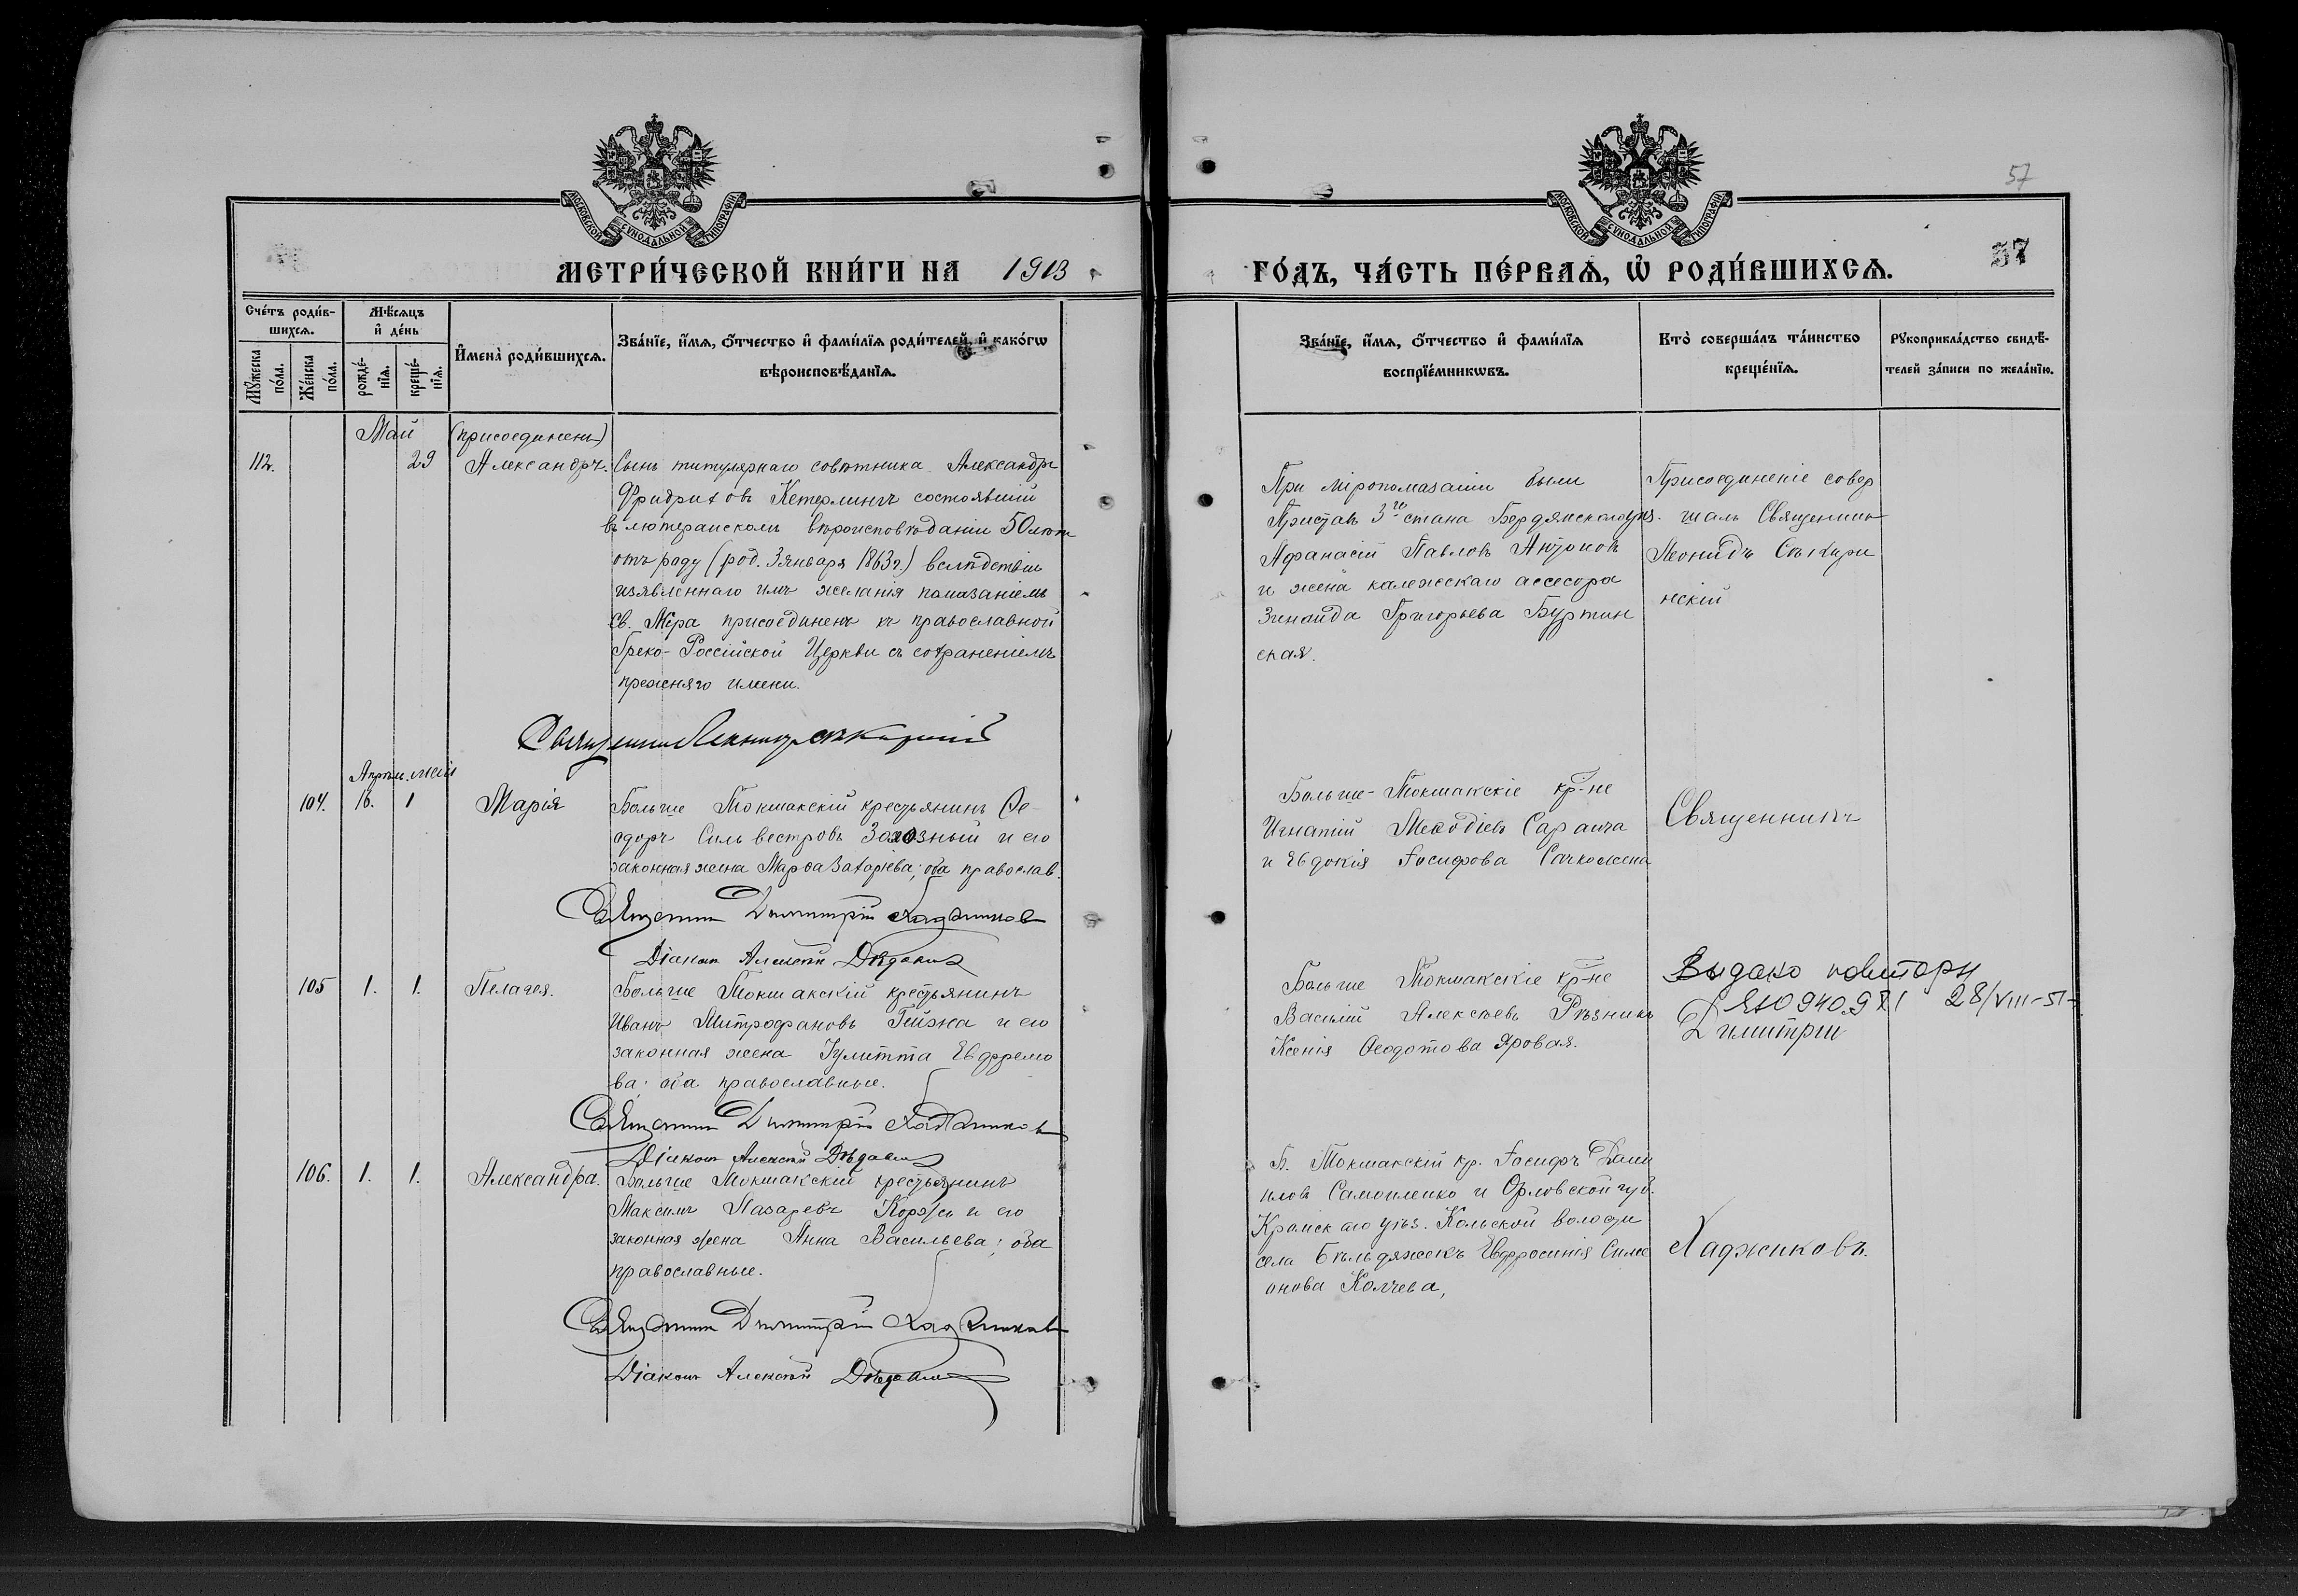 57
МОСКОВСКОЙ СѴНОДАЛЬНОЙ ТИПОГРАФІИ
МОСКОВСКОЙ СѴНОДАЛЬНОЙ ТИПОГРАФІИ
57
МЕТРИ́ЧЕСКОЙ КНИ́ГИ НА 1913
ГО́ДЪ, ЧА́СТЬ ПЕ́РВАѦ, Ѡ҆ РОДИ́ВШИХСѦ.
Сче́тъ роди́в-
шихсѧ.
Мѣ́сѧцъ
и҆ де́нь
Мꙋ́жеска по́ла.
Же́нска по́ла.
рожде́-нїѧ.
креще́-нїѧ.
И҆мена̀ роди́вшихсѧ.
Зва́нїе, и҆́мѧ, ѻ҆́тчество и҆ фами́лїѧ роди́телей, и҆ како́гѡ
вѣроисповѣ́данїѧ.
Зва́нїе, и҆́мѧ, ѻ҆́тчество и҆ фами́лїѧ
воспрїе́мникѡвъ.
Кто̀ соверша́лъ та́инство
креще́нїѧ.
Рꙋкоприкла́дство свидѣ́-
телей за́писи по жела́нїю.
Май (присоединенъ)
112. 29 Александръ. Сынъ титулярнаго совѣтника Александръ
Фридриховъ Кетерлингъ состоявшій
въ лютеранскомъ вѣроисповѣданіи 50 лѣтъ
отъ роду (род. 3 января 1863 г.) вслѣдствіе
изявленнаго имъ желанія помазаніемъ
Св. Мѵра присоединенъ къ православной
Греко-Россійской Церкви съ сохраненіемъ
прежняго имени.
При мѵропомазаніи были
Приставъ 3го стана Бердянскаго уѣз.
Афанасій Павловъ Антоновъ
и жена калежскаго ассесора
Зинаида Григорьева Буртин
ская.
Присоединеніе совер
шалъ Священникъ
Леонидъ Сѣкири
нскій
Священникъ Леонидъ Сѣкиринскій
Апрѣл. Май
104. 16. 1 Марія Больше Токмакскій крестьянинъ Ѳе-
одоръ Сильвестровъ и его
законная жена Марѳа Захаріева; оба православ.
Священникъ Димитрій Хаджиковъ
Діаконъ Алексѣй
Больше-Токмакскіе кр-не
Игнатій Меѳодіевъ Саранча
и Евдокія Іосифова
Священникъ
105 1. 1. Пелагея. Больше Токмакскій крестьянинъ
Иванъ Митрофановъ и его
законная жена Іулитта Евфремо
ва; оба православные.
Священникъ Димитрій Хаджиковъ
Діаконъ Алексѣй
Больше Токмакскіе кр-не
Василій Алексѣевъ Рѣзникъ
Ксенія Ѳеодотова Яровая.
Видано повторн
940.981 28/VIII-51-
Димитрій
106. 1. 1. Александра. Больше Токмакскій крестьянинъ
Максимъ Лазаревъ Коржъ и его
законная жена Анна Васильева; оба
православные.
Священникъ Димитрій Хаджиковъ
Діаконъ Алексѣй
Б. Токмакскій кр. Іосифъ Дани
иловъ Самойленко и Орловской губ.
Кромскаго уѣз. Кольской волости
села Бѣльдяжекъ Евфросинія Симе
онова Колчева,
Хаджиковъ.